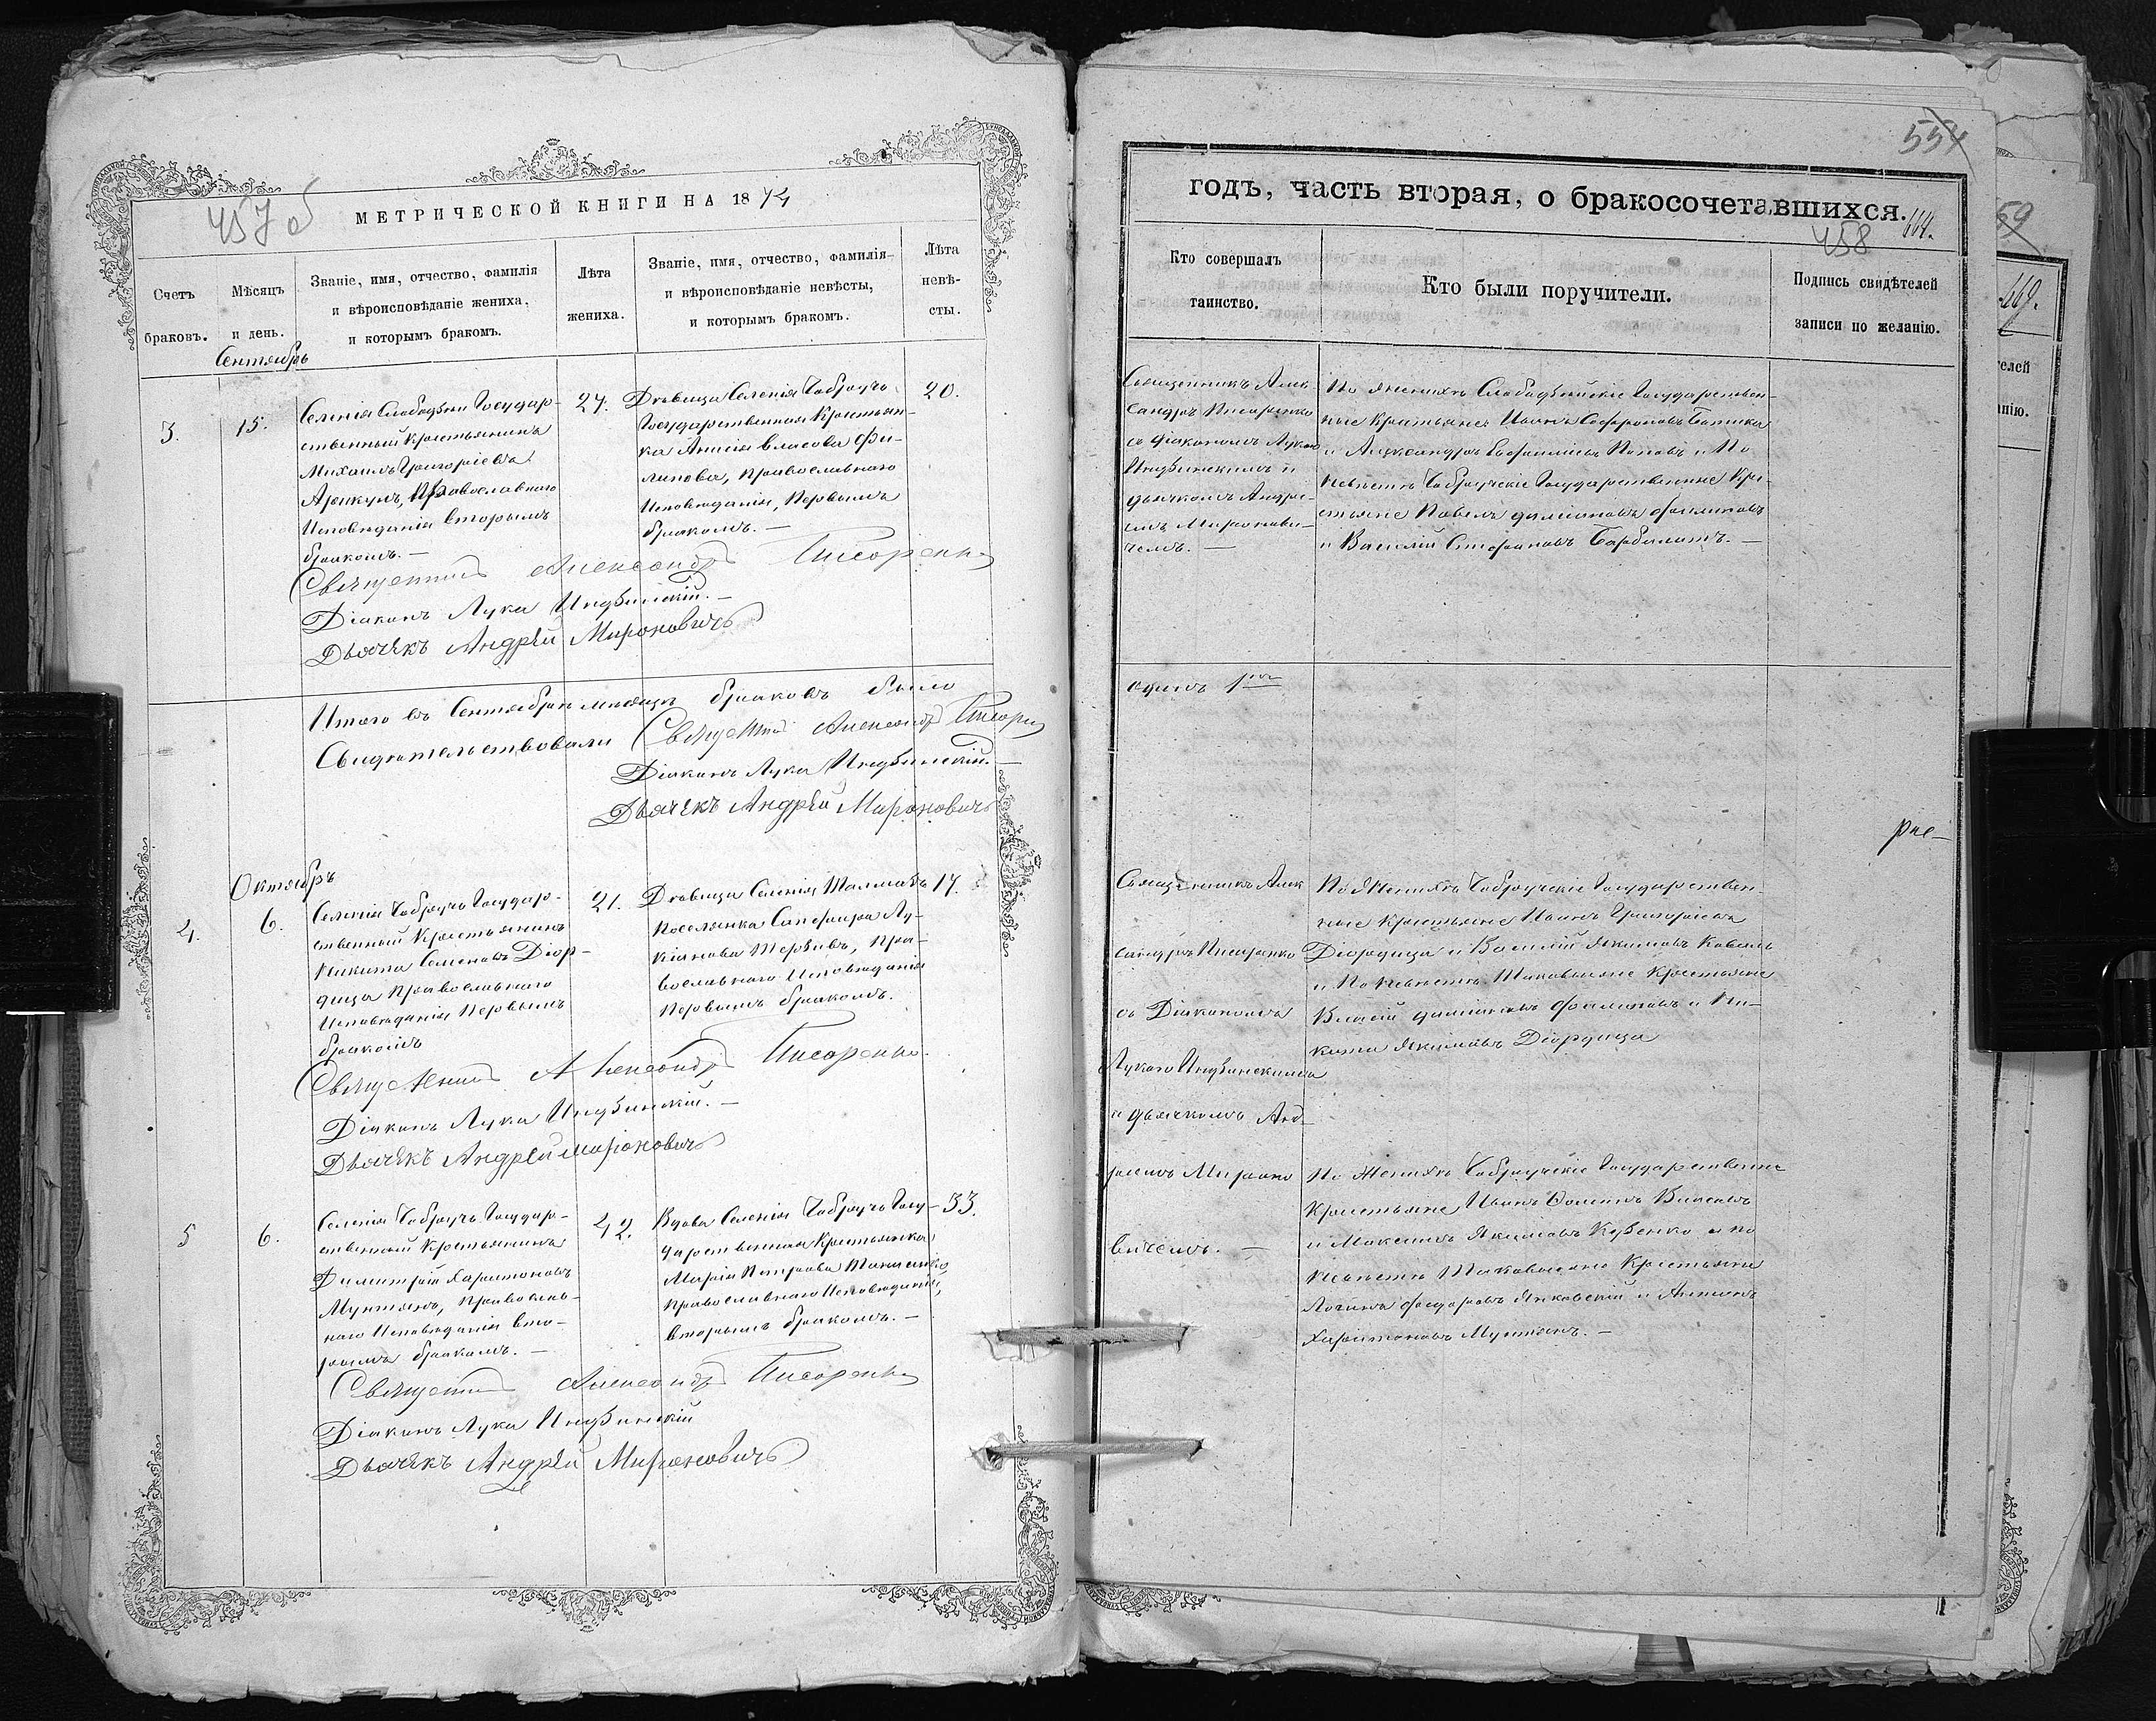 457 об
МЕТРИЧЕСКОЙ КНИГИ НА 1874
Счетъ
браковъ.
Мѣсяцъ
и день.
Званіе, имя, отчество, фамилія
и вѣроисповѣданіе жениха,
и которымъ бракомъ.
Лѣта
жениха.
Званіе, имя, отчество, фамилія
и вѣроисповѣданіе невѣсты,
и которымъ бракомъ.
Лѣта
невѣ-
сты.
Сентябрь
3.
15.
Селенія Слободзеи Государ-
ственный крестьянинъ
Михаилъ Григоріевъ
православнаго
Исповѣданія вторымъ
бракомъ. —
24.
Дѣвица Селенія Чобручь
Государственная Крестьян-
ка Анисія Власова Фи-
липова, православнаго
Исповѣданія, первымъ
бракомъ. —
20.
Священникъ Александръ Писаренко
Діаконъ Лука Индзинскій. —
Дьячекъ Андрей Мироновичъ
Итого въ Сентябрѣ мѣсяцѣ браковъ было
Свидѣтельствовали Священникъ Александръ Писаренко
Діаконъ Лука Индзинскій. —
Дьячекъ Андрей Мироновичъ
Октябрь
4.
6.
Селенія Чобручь Государ-
ственный Крестьянинъ
Никита Семеновъ Діор-
дица православнаго
Исповѣданія первымъ
бракомъ
21.
Дѣвица Селенія
Поселянка Лу-
кіанова пра-
вославнаго Исповѣданія
первымъ бракомъ.
17.
Священникъ Александръ Писаренко.
Діаконъ Лука Индзинскій. —
Дьячекъ Андрей Мироновичъ
5
6.
Селенія Чобручь Государ-
ственный Крестьянинъ
Димитрій Харитоновъ
Мунтянъ, православ-
наго Исповѣданія вто-
рымъ бракомъ. —
42.
Вдова Селенія Чобручь Госу-
дарственная Крестьянка
Марія Петрова
православнаго Исповѣданія,
вторымъ бракомъ. —
33.
Священникъ Александръ Писаренко
Діаконъ Лука Индзинскій
Дьячекъ Андрей Мироновичъ
554
годъ, часть вторая, о бракосочетавшихся.
664.
458
Кто совершалъ
таинство.
Кто были поручители.
Подпись свидѣтелей
записи по желанію.
Священникъ Алек-
сандръ Писаренко
съ діакономъ Лукою
Индзинскимъ и
дьячкомъ Андре-
емъ Миронови-
чемъ. —
По женихѣ Слободзейскіе Государствен-
ные Крестьяне Иванъ Софроновъ
и Александръ Поповъ и По
невѣстѣ Чобручскіе Государственные Кре-
стьяне Павелъ Филиповъ
и Василій Стефановъ —
одинъ 1
Священникъ Алек
сандръ Писаренко
съ Діакономъ
Лукою Индзинскимъ
и дьячкомъ Анд-
реемъ Мироно
вичемъ. —
По Женихѣ Чобручскіе Государствен-
ные Крестьяне Иванъ Григоріевъ
Діордица и Василій Якимовъ Коваль
и По невѣстѣ Таковыеже Крестьяне
Власій Филиповъ и Ни-
кита Якимовъ Діордица
По Женихѣ Чобручскіе Государственные
Крестьяне Иванъ Власовъ
и Максимъ Якимовъ и по
невѣстѣ Таковыеже Крестьяне
Логинъ Федоровъ Янковскій и Антонъ
Харитоновъ Мунтянъ. —
669.